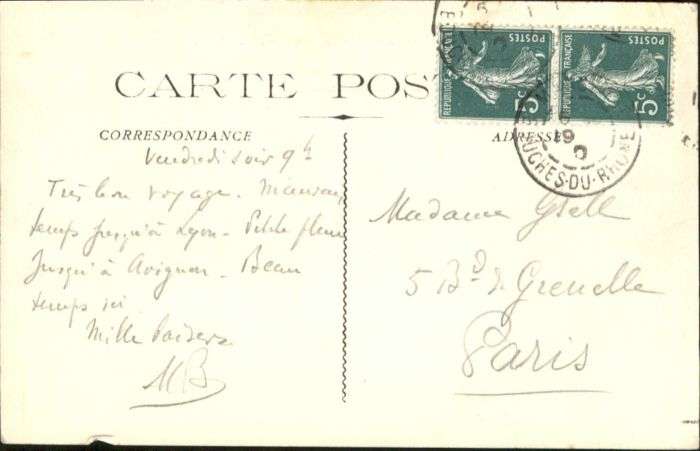 CARTE POS
RÉPUBLIQUE FRANÇAISE
POSTES
5c
RÉPUBLIQUE FRANÇAISE
POSTES
5c
UCHES-DU-RHONE
CORRESPONDANCE
ADRESSE
Vendredi soir 9h
Très bon voyage. Mauvais
temps jusqu'à Lyon - Petite pluie
jusqu'à Avignon - Beau
temps ici
Mille baisers
MB
Madame Gsell
5 Bd de Grenelle
Paris